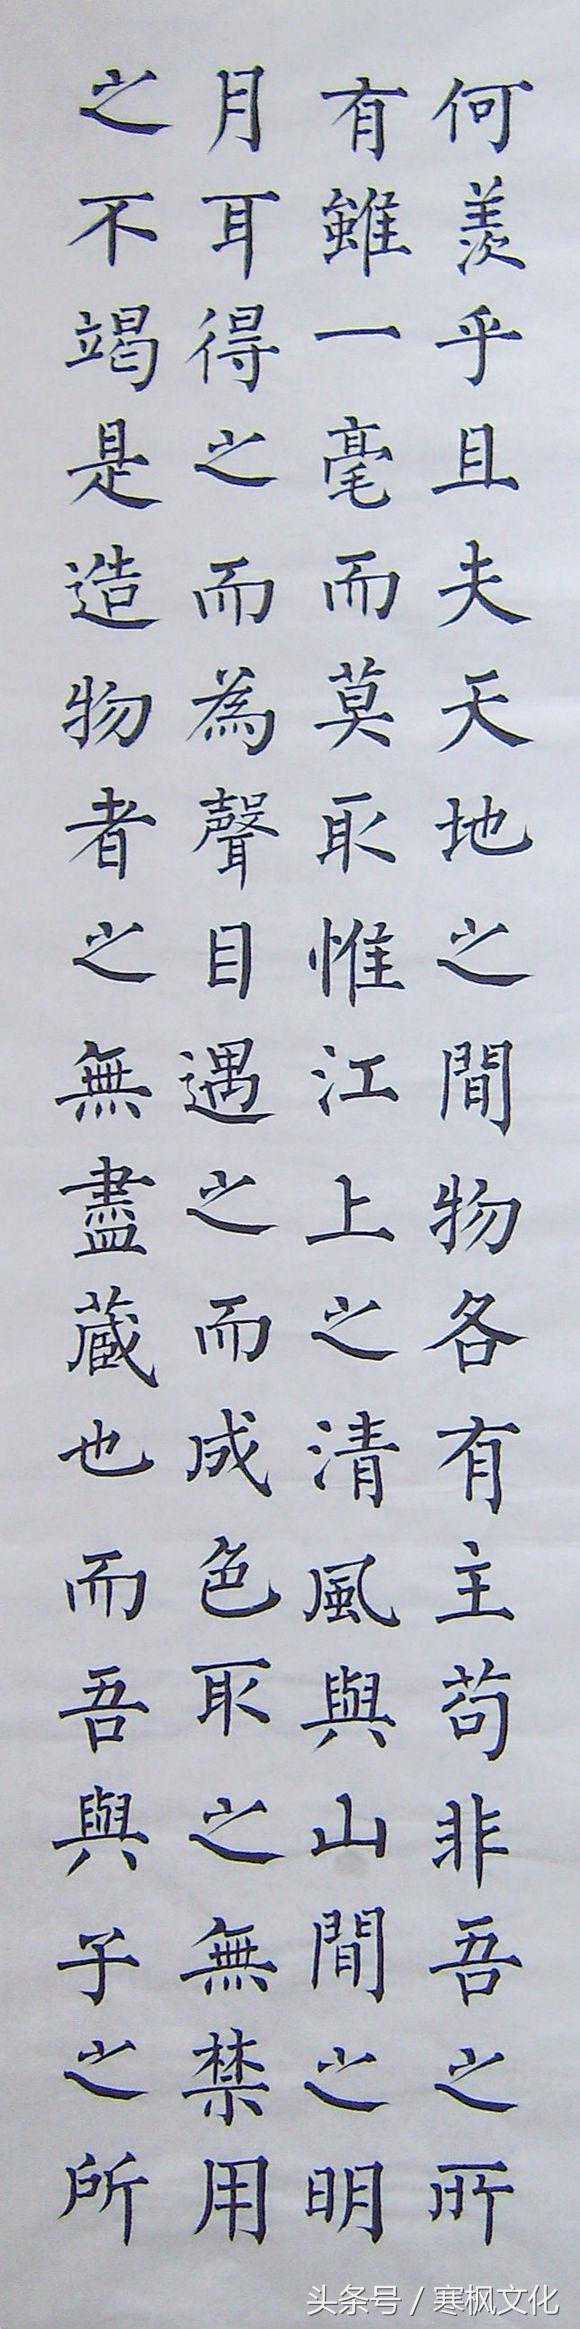 何羨乎且夫天地之間物各有主苟非吾之所
有雖一毫而莫取惟江上之清風與山間之明
月耳得之而為聲目遇之而成色取之無禁用
之不竭是造物者之無盡藏也而吾與子之所
头条号 / 寒枫文化